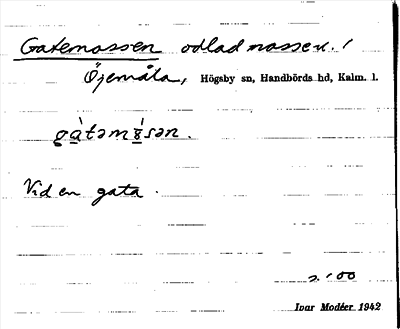 Gatemossen odlad mosse v. /
Öjemåla, Högsby sn, Handbörds hd, Kalm. l.
Vid en gata.
Ivar Modéer 1942